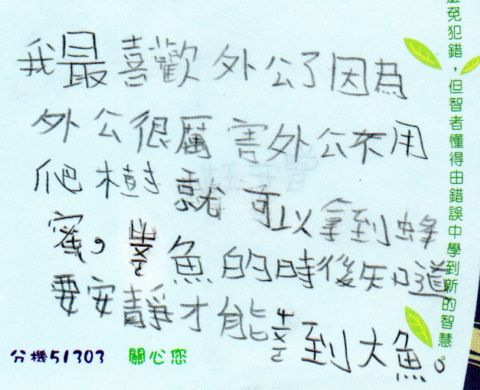 我最喜歡外公了因為
外公很厲害外公不用
爬樹就可以拿到蜂
蜜。魚的時後知道
要安靜才能到大魚。
免犯錯，但智者懂得由錯誤中學到新的智慧。
分機51303 關心您